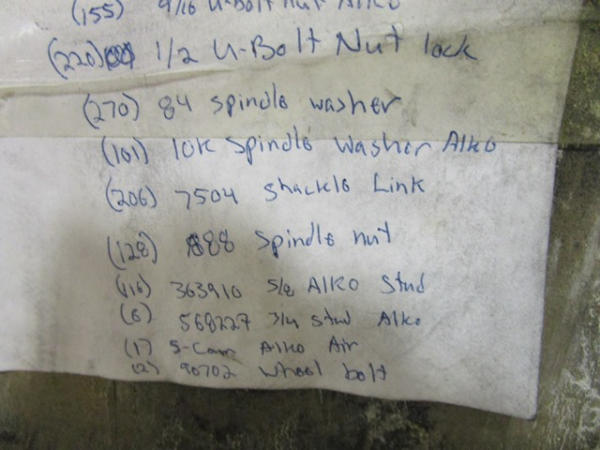 (155) 9/16 U-Bolt nut Alko
(220) 1/2 U-Bolt Nut lock
(270) 84 spindle washer
(101) 10K Spindle Washer Alko
(206) 7504 Shackle Link
(128) 888 Spindle nut
(16) 363910 5/8 Alko Stud
(6) 568227 3/4 stud Alko
(1) S-Cam Alko Air
(2) 90702 wheel bolt